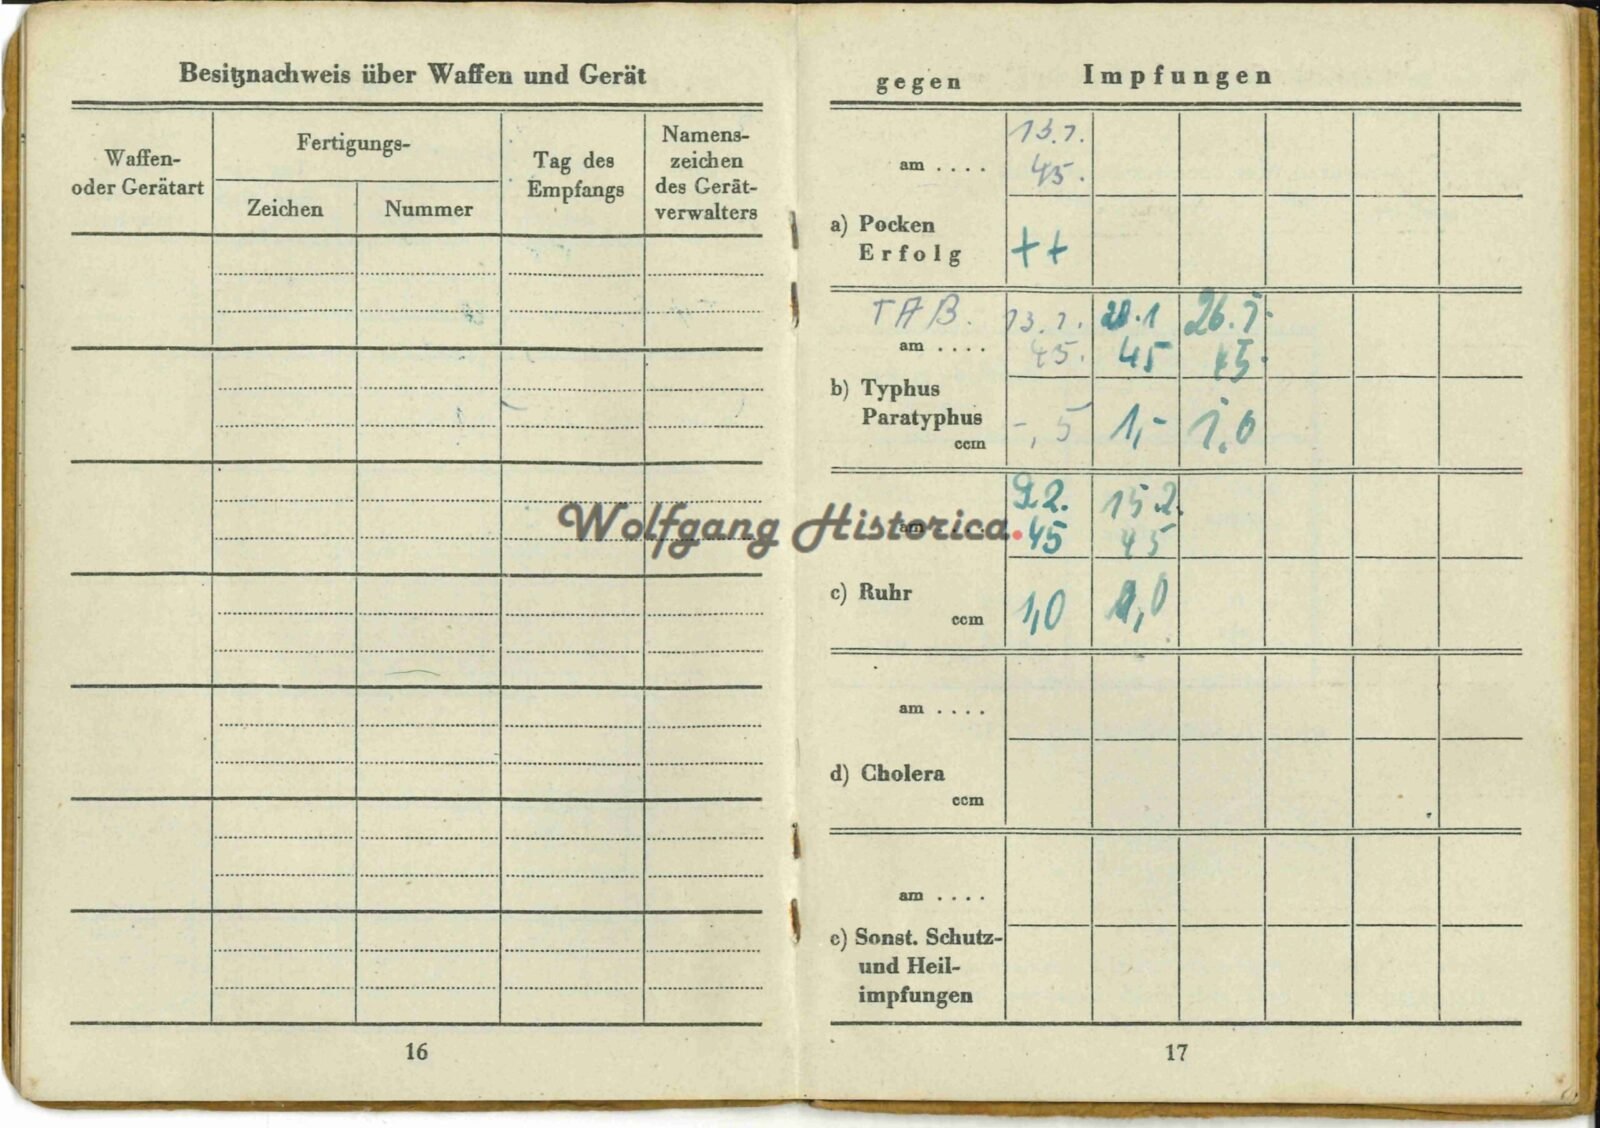 Besitznachweis über Waffen und Gerät
Waffen-
oder Gerätart
Fertigungs-
Zeichen
Nummer
Tag des
Empfangs
Namens-
zeichen
des Gerät-
verwalters
16
gegen Impfungen
am . . . . 13.1.
45.
a) Pocken
Erfolg ++
TAB. 13.1. 28.1 26.1.
am . . . . 45. 45 45.
b) Typhus
Paratyphus -,5 1,- 1.0
ccm
9.2. 15.2.
am . . . . 45 45
c) Ruhr 1,0 1,0
ccm
am . . . .
d) Cholera
ccm
am . . . .
e) Sonst. Schutz-
und Heil-
impfungen
17
Wolfgang Historica.